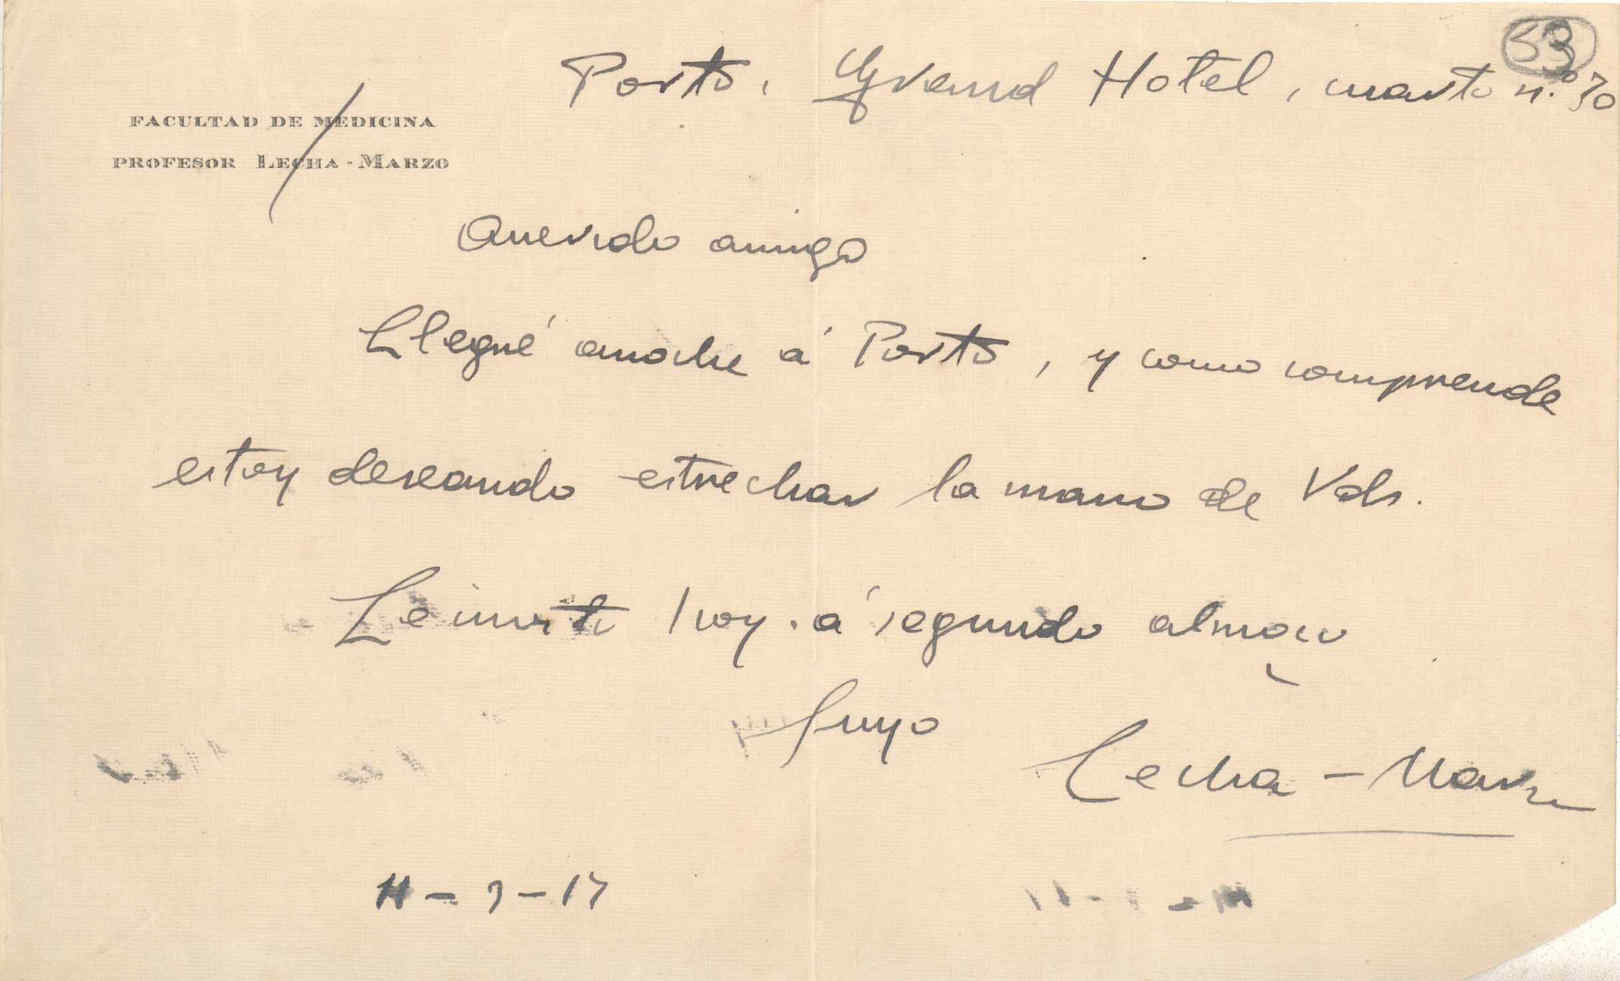 53
Porto, Grand Hotel, cuarto n.º 30
FACULTAD DE MEDICINA
PROFESOR LECHA-MARZO
Querido amigo
Llegué anoche á Porto, y como comprende
estoy deseando estrechar la mano de Vds.
Le invito hoy á segundo almoço
Suyo
Lecha-Marzo
11-3-17